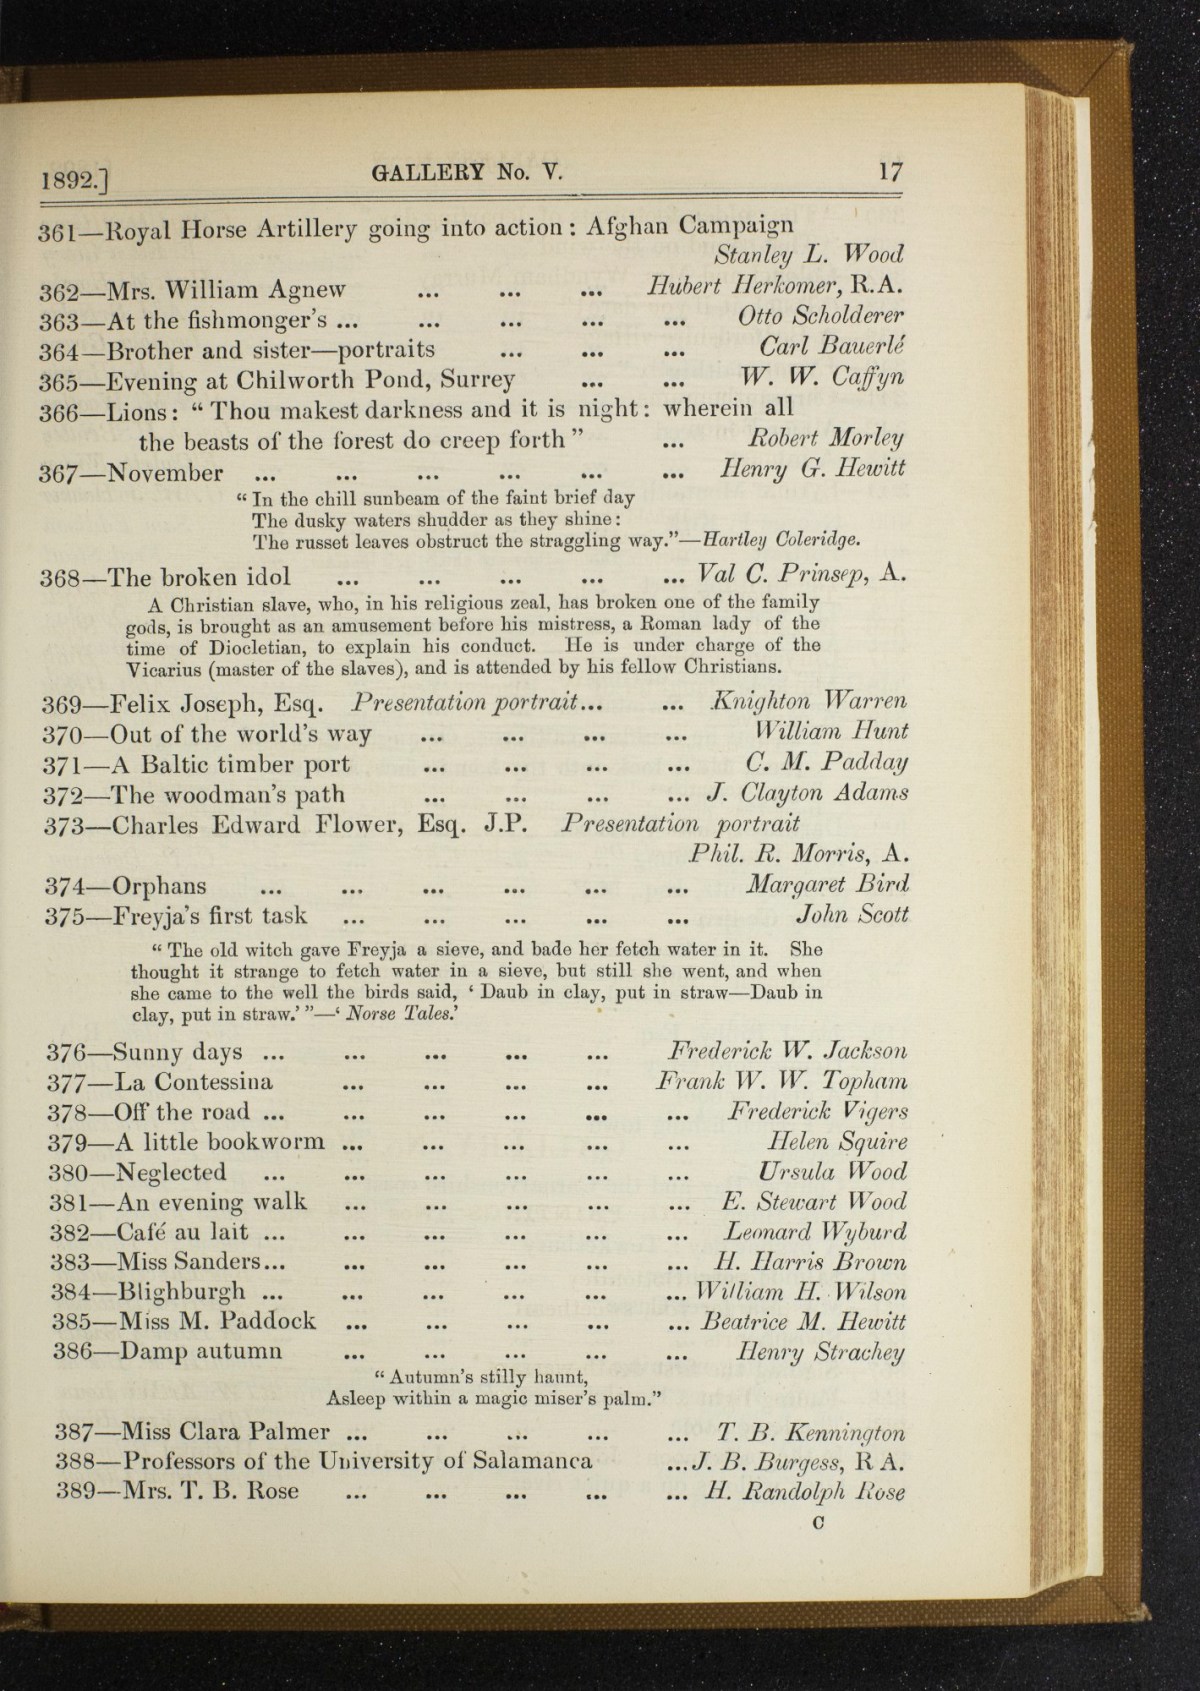 1892.] GALLERY No. V. 17
361—Royal Horse Artillery going into action: Afghan Campaign
Stanley L. Wood
362—Mrs. William Agnew ... ... ... Hubert Herkomer, R.A.
363—At the fishmonger's ... ... ... ... ... Otto Scholderer
364—Brother and sister—portraits ... ... ... Carl Bauerlé
365—Evening at Chilworth Pond, Surrey ... ... W. W. Caffyn
366—Lions: “Thou makest darkness and it is night: wherein all
the beasts of the forest do creep forth” ... Robert Morley
367—November ... ... ... ... ... ... Henry G. Hewitt
“In the chill sunbeam of the faint brief day
The dusky waters shudder as they shine:
The russet leaves obstruct the straggling way.”—Hartley Coleridge.
368—The broken idol ... ... ... ... ... Val C. Prinsep, A.
A Christian slave, who, in his religious zeal, has broken one of the family
gods, is brought as an amusement before his mistress, a Roman lady of the
time of Diocletian, to explain his conduct. He is under charge of the
Vicarius (master of the slaves), and is attended by his fellow Christians.
369—Felix Joseph, Esq. Presentation portrait... ... Knighton Warren
370—Out of the world's way ... ... ... ... William Hunt
371—A Baltic timber port ... ... ... ... C. M. Padday
372—The woodman's path ... ... ... ... J. Clayton Adams
373—Charles Edward Flower, Esq. J.P. Presentation portrait
Phil. R. Morris, A.
374—Orphans ... ... ... ... ... ... Margaret Bird
375—Freyja's first task ... ... ... ... ... John Scott
“The old witch gave Freyja a sieve, and bade her fetch water in it. She
thought it strange to fetch water in a sieve, but still she went, and when
she came to the well the birds said, ‘Daub in clay, put in straw—Daub in
clay, put in straw.’”—‘Norse Tales.’
376—Sunny days ... ... ... ... ... Frederick W. Jackson
377—La Contessina ... ... ... ... Frank W. W. Topham
378—Off the road ... ... ... ... ... ... Frederick Vigers
379—A little bookworm ... ... ... ... ... Helen Squire
380—Neglected ... ... ... ... ... ... Ursula Wood
381—An evening walk ... ... ... ... ... E. Stewart Wood
382—Café au lait ... ... ... ... ... ... Leonard Wyburd
383—Miss Sanders... ... ... ... ... ... H. Harris Brown
384—Blighburgh ... ... ... ... ... ... William H. Wilson
385—Miss M. Paddock ... ... ... ... ... Beatrice M. Hewitt
386—Damp autumn ... ... ... ... ... Henry Strachey
“Autumn's stilly haunt,
Asleep within a magic miser's palm.”
387—Miss Clara Palmer ... ... ... ... ... T. B. Kennington
388—Professors of the University of Salamanca ...J. B. Burgess, R A.
389—Mrs. T. B. Rose ... ... ... ... ... H. Randolph Rose
C